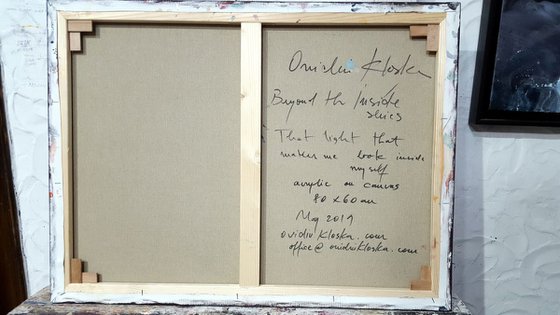 Ovidiu Kloska
Beyond the Inside
series
That light that
makes me look inside
myself
acrylic on canvas
80 x 60 cm
May 2019
ovidiukloska.com
office@ovidiukloska.com